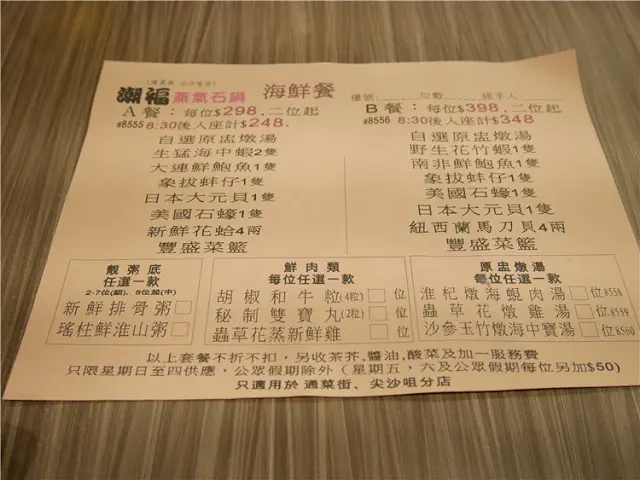 潮福 蒸氣石鍋 海鮮餐 檯號： 位數 經手人
A餐：每位$298, 二位起
#8555 8:30後入座計$248.
自選原盅燉湯
生猛海中蝦2隻
大連鮮鮑魚1隻
象拔蚌仔1隻
日本大元貝1隻
美國石蠔1隻
新鮮花蛤4兩
豐盛菜籃
B餐：每位$398, 二位起
#8556 8:30後入座計$348
自選原盅燉湯
野生花竹蝦1隻
南非鮮鮑魚1隻
象拔蚌仔1隻
美國石蠔1隻
日本大元貝1隻
紐西蘭馬刀貝4兩
豐盛菜籃
靚粥底
任選一款
2-7位(細), 8位起(中)
新鮮排骨粥
瑤柱鮮淮山粥
鮮肉類
每位任選一款
胡椒和牛粒(4粒) 位
秘制雙寶丸(2粒) 位
蟲草花蒸新鮮雞 位
原盅燉湯
每位任選一款
淮杞燉海螺肉湯 位8558
蟲草花燉海蝦湯 位8559
沙參玉竹燉海中寶湯 位8560
以上套餐不折不扣，另收茶芥,醬油,酸菜及加一服務費
只限星期日至四供應，公眾假期除外（星期五，六及公眾假期每位另加$50)
只適用於 通菜街、尖沙咀分店